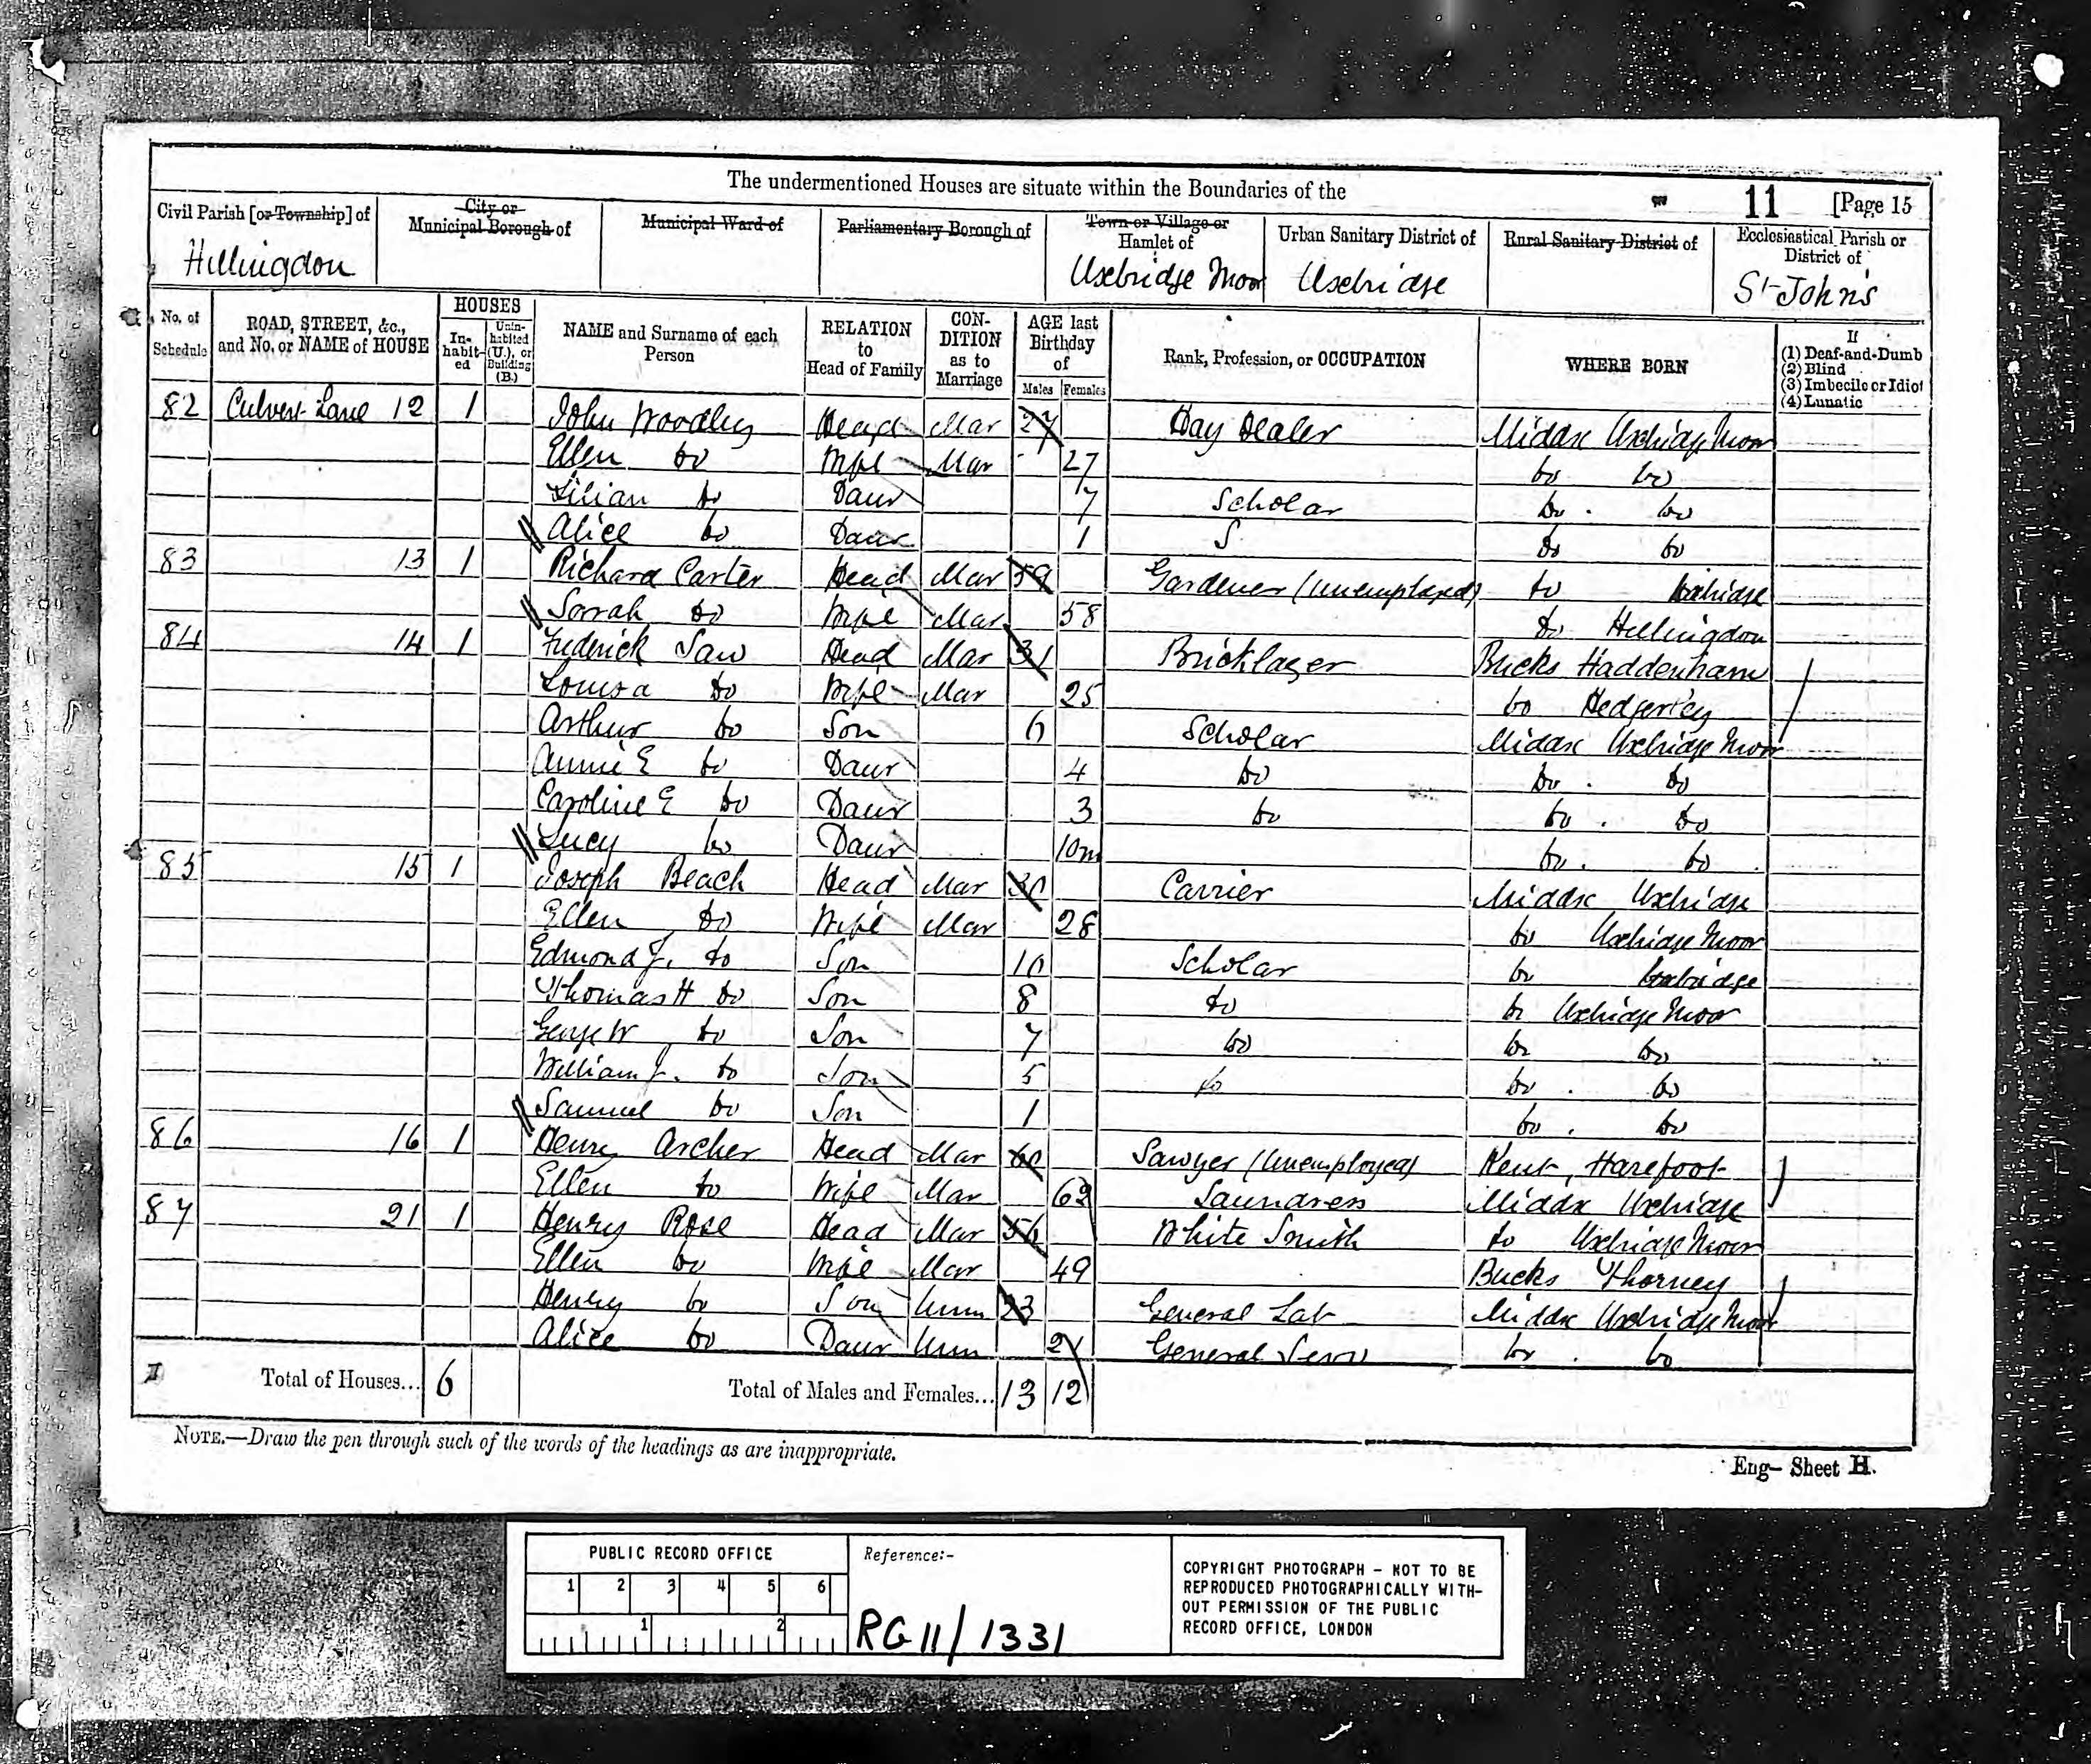 The undermentioned Houses are situate within the Boundaries of the
11 [Page 15
Civil Parish [or Township] of
City or Municipal Borough of
Municipal Ward of
Parliamentary Borough of
Town or Village or Hamlet of
Urban Sanitary District of
Rural Sanitary District of
Ecclesiastical Parish or District of
Hillingdon Uxbridge Moor Uxbridge St Johns
No. of Schedule
ROAD, STREET, &c., and No. or NAME of HOUSE
HOUSES
In-habit-ed
Unin-habited (U.), or Building (B.)
NAME and Surname of each Person
RELATION to Head of Family
CON-DITION as to Marriage
AGE last Birthday of
Males Females
Rank, Profession, or OCCUPATION
WHERE BORN
If
(1) Deaf-and-Dumb
(2) Blind
(3) Imbecile or Idiot
(4) Lunatic
82 Culvert Lane 12 1 John Woodley Head Mar 27 Hay Dealer Middx Uxbridge Moor
Ellen Do Wife Mar 27 Do Do
Lilian Do Daur 7 Scholar Do Do
Alice Do Daur 1 S Do Do
83 13 1 Richard Carter Head Mar 59 Gardener (unemployed) Do Uxbridge
Sarrah Do Wife Mar 58 Do Hillingdon
84 14 1 Frederick Saw Head Mar 31 Bricklayer Bucks Haddenham
Louisa Do Wife Mar 25 Do Hedgerley
Arthur Do Son 6 Scholar Middx Uxbridge Moor
Annie E Do Daur 4 Do Do Do
Caroline E Do Daur 3 Do Do Do
Lucy Do Daur 10m Do Do
85 15 1 Joseph Beach Head Mar 30 Carrier Middx Uxbridge
Ellen Do Wife Mar 28 Do Uxbridge Moor
Edmond J. Do Son 10 Scholar Do Uxbridge
Thomas H Do Son 8 Do Do Uxbridge Moor
George W Do Son 7 Do Do Do
William J. Do Son 5 Do Do Do
Samuel Do Son 1 Do Do
86 16 1 Henry Archer Head Mar 60 Sawyer (Unemployed) Kent, Harefoot
Ellen Do Wife Mar 62 Laundress Middx Uxbridge
87 21 1 Henry Rose Head Mar 56 White Smith Do Uxbridge Moor
Ellen Do Wife Mar 49 Bucks Thorney
Henry Do Son Unm 23 General Lab Middx Uxbridge Moor
Alice Do Daur Unm 21 General Serv Do Do
Total of Houses... 6 Total of Males and Females... 13 12
NOTE.—Draw the pen through such of the words of the headings as are inappropriate.
Eng— Sheet H.
PUBLIC RECORD OFFICE
1 2 3 4 5 6
1 2
Reference:-
RG 11/1331
COPYRIGHT PHOTOGRAPH - NOT TO BE
REPRODUCED PHOTOGRAPHICALLY WITH-
OUT PERMISSION OF THE PUBLIC
RECORD OFFICE, LONDON